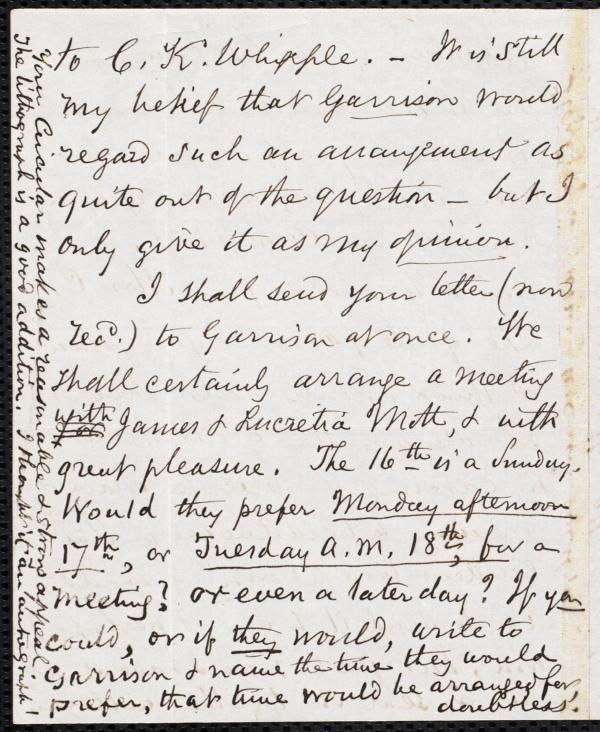 to C. K. Whipple. - It is still
my belief that Garrison would
regard such an arrangement as
quite out of the question - but I
only give it as my opinion.
I shall send your letter (now
rec'd.) to Garrison at once. We
shall certainly arrange a meeting
with James & Lucretia Mott, & with
great pleasure. The 16th is a Sunday.
Would they prefer Monday afternoon
17th, or Tuesday A.M. 18th, for a
meeting? or even a later day? If you
could, or if they would, write to
Garrison & name the time they would
prefer, that time would be arranged for,
doubtless.
Your Circular makes a reasonable & strong appeal.
The lithograph is a good addition. I thought it an autograph!